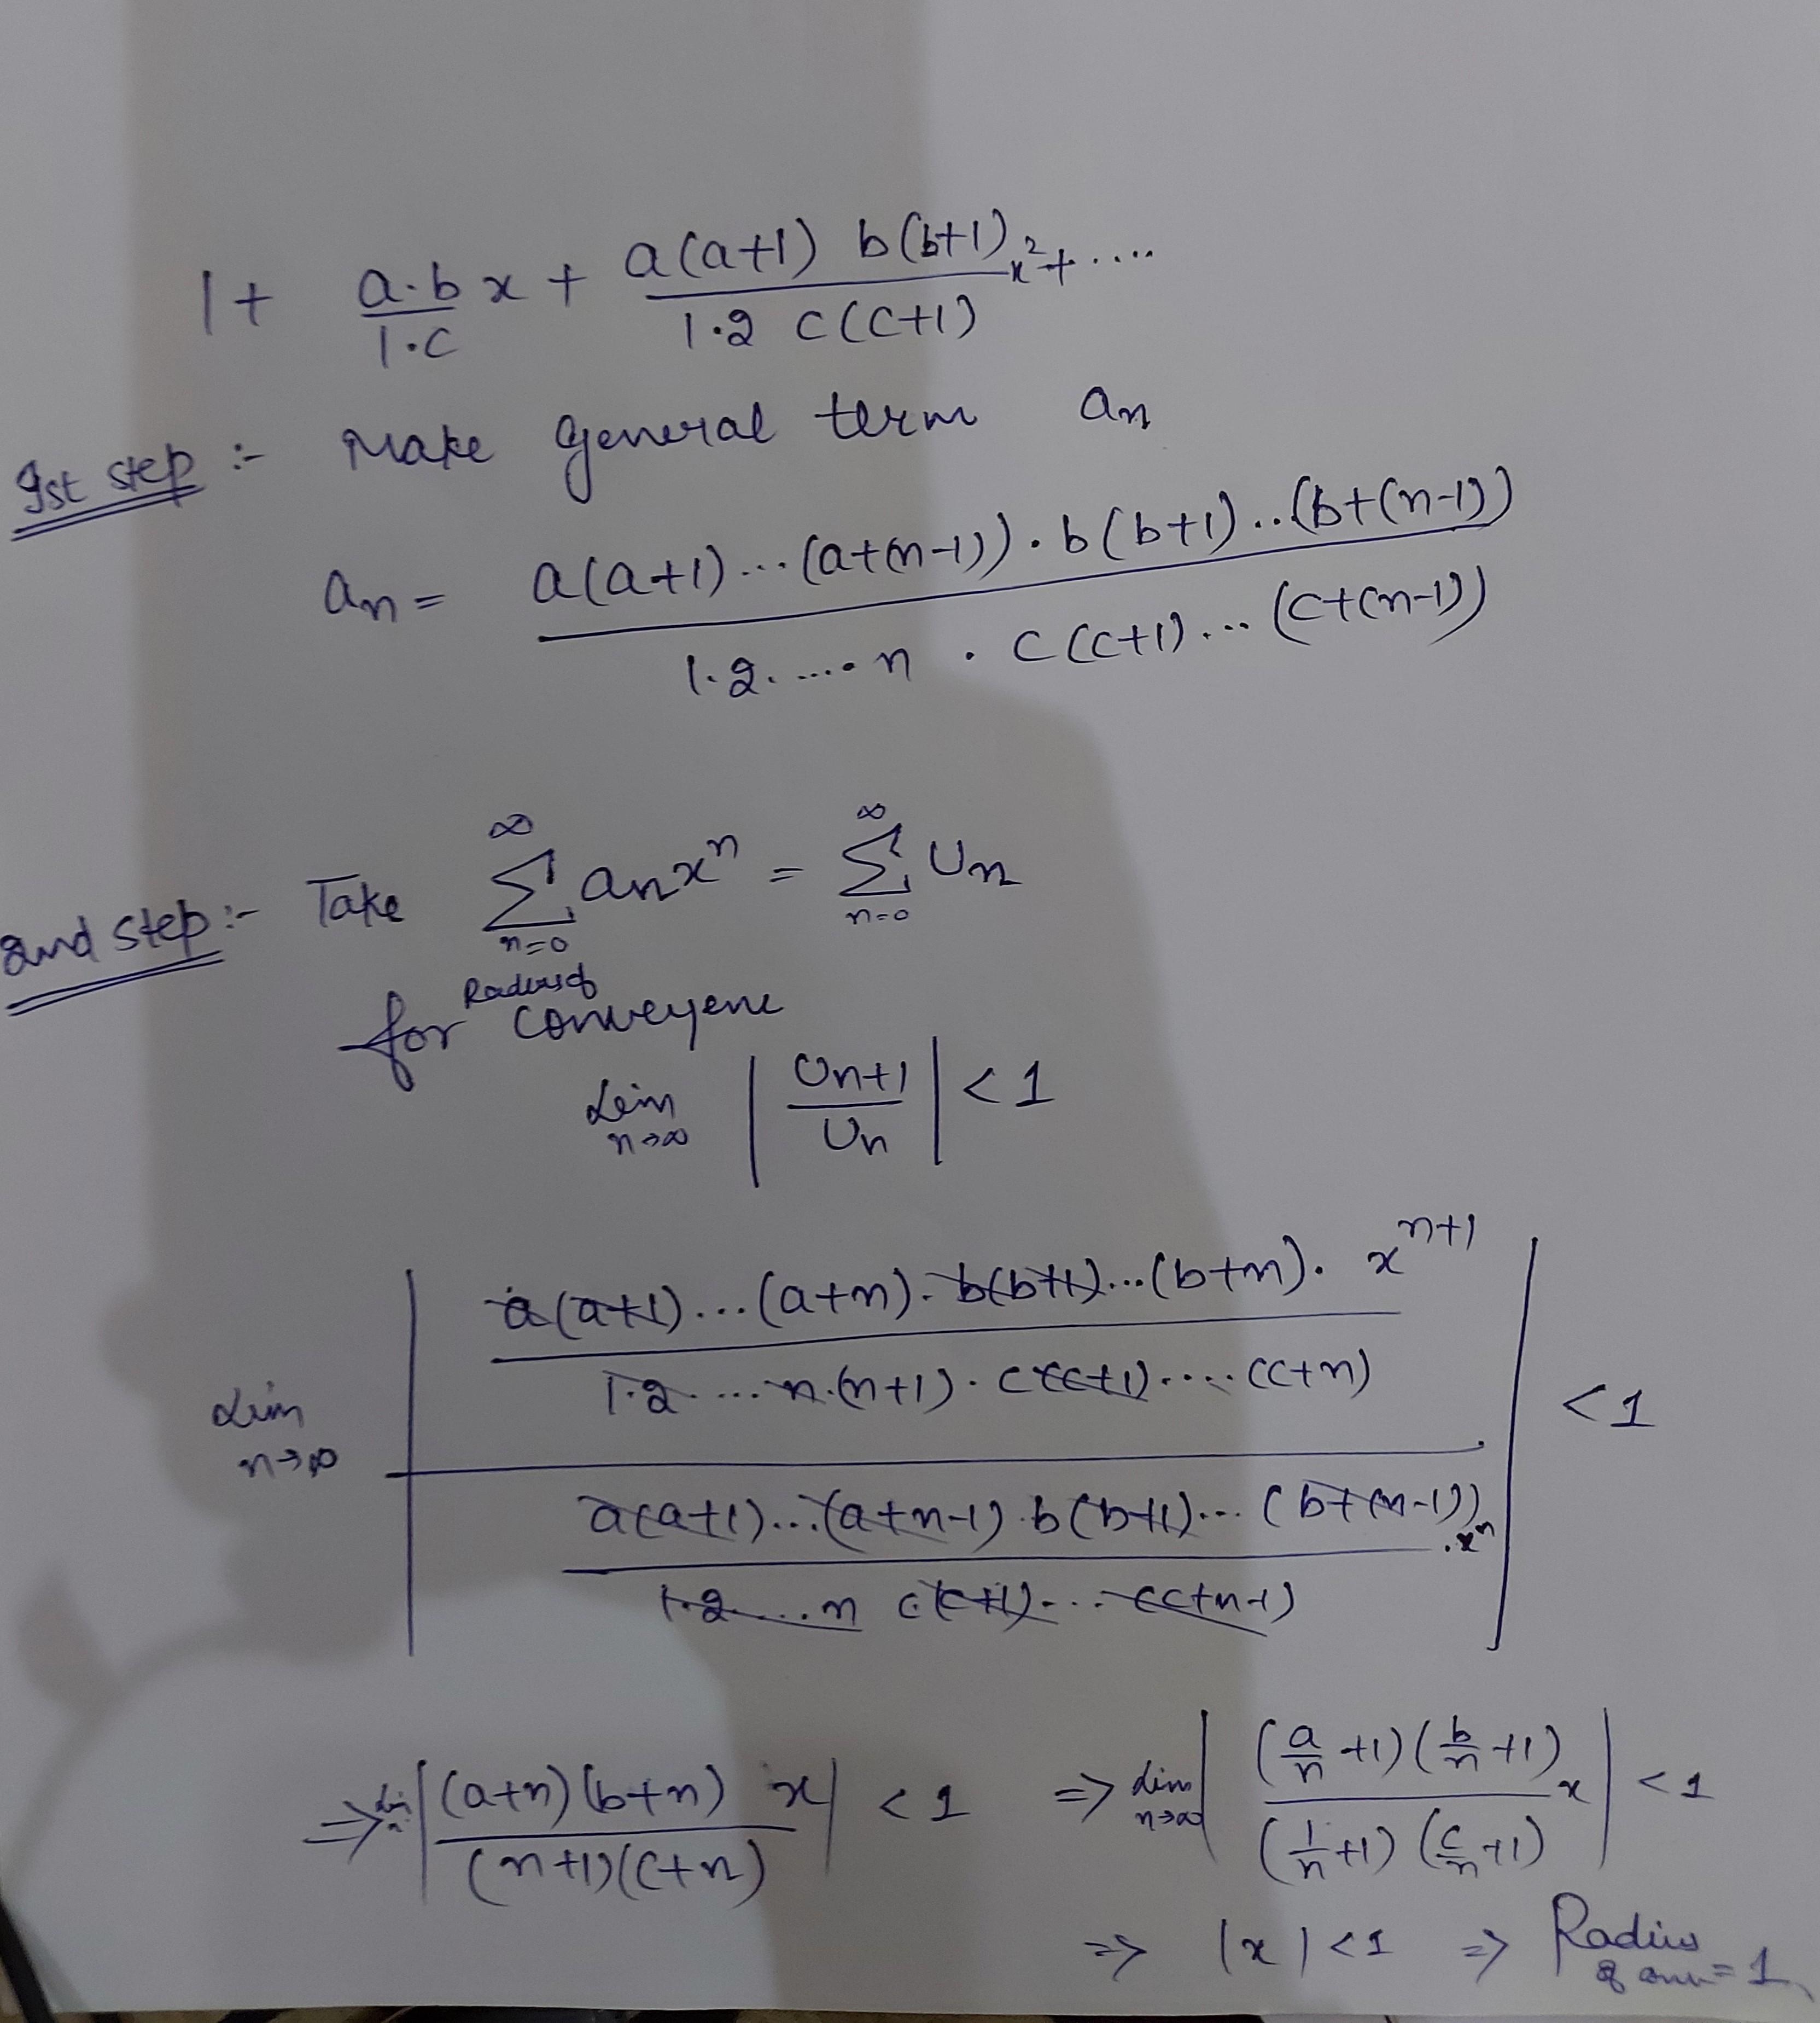 1 + a.b/1.c x + a(a+1) b(b+1)/1.2 c(c+1) x² + ....
Ist step :- Make general term an
an = a(a+1)...(a+(n-1)).b(b+1)..(b+(n-1))/1.2.....n . c(c+1)...(c+(n-1))
2nd step :- Take ∞Σn=0 anxⁿ = ∞Σn=0 Un
for Radius of
Lim n→∞ |Un+1/Un| < 1
Lim n→∞ |a(a+1)...(a+n).b(b+1)...(b+n). xⁿ⁺¹/1.2.....n.(n+1).c(c+1).....(c+n) / a(a+1)...(a+n-1).b(b+1)...(b+(n-1)).xⁿ/1.2....n c(c+1)...(c+n-1)| < 1
⇒ |(a+n)(b+n) x/(n+1)(c+n)| < 1 ⇒ Lim n→∞ |(a/n +1)(b/n +1)/(1/n +1)(c/n +1) x| < 1
⇒ |x| < 1 ⇒ Radius of = 1